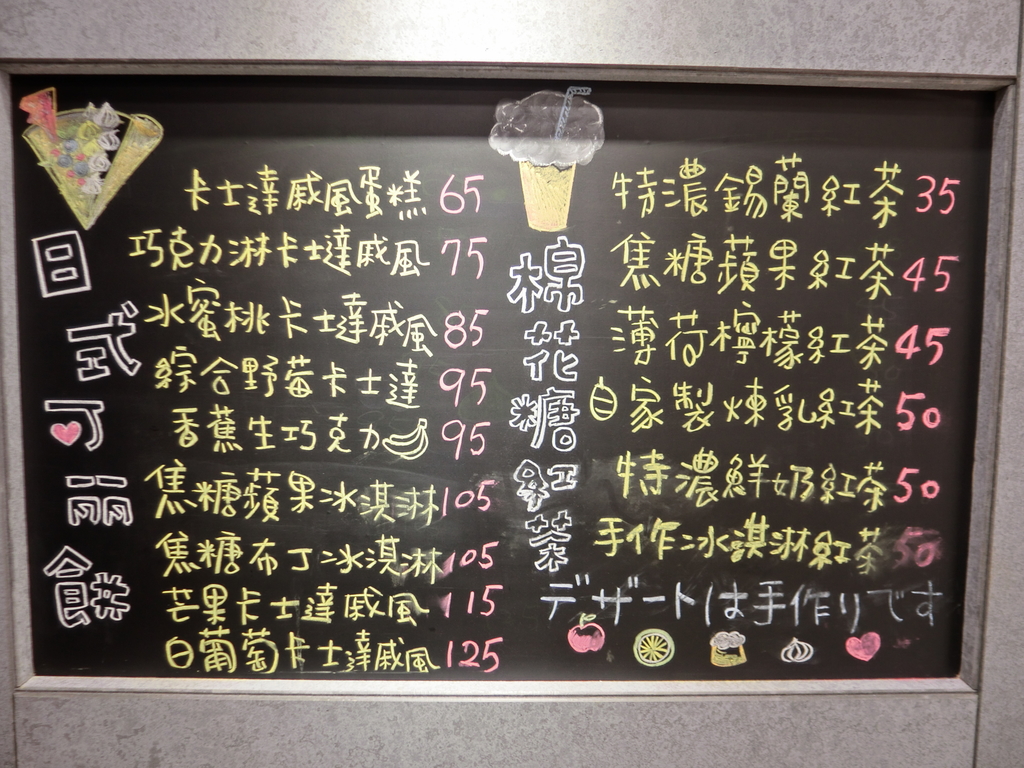 日式可麗餅
卡士達戚風蛋糕 65
巧克力淋卡士達戚風 75
水蜜桃卡士達戚風 85
綜合野莓卡士達 95
香蕉生巧克力 95
焦糖蘋果冰淇淋 105
焦糖布丁冰淇淋 105
芒果卡士達戚風 115
白葡萄卡士達戚風 125
棉花糖紅茶
特濃錫蘭紅茶 35
焦糖蘋果紅茶 45
薄荷檸檬紅茶 45
自家製煉乳紅茶 50
特濃鮮奶紅茶 50
手作冰淇淋紅茶 50
デザートは手作りです